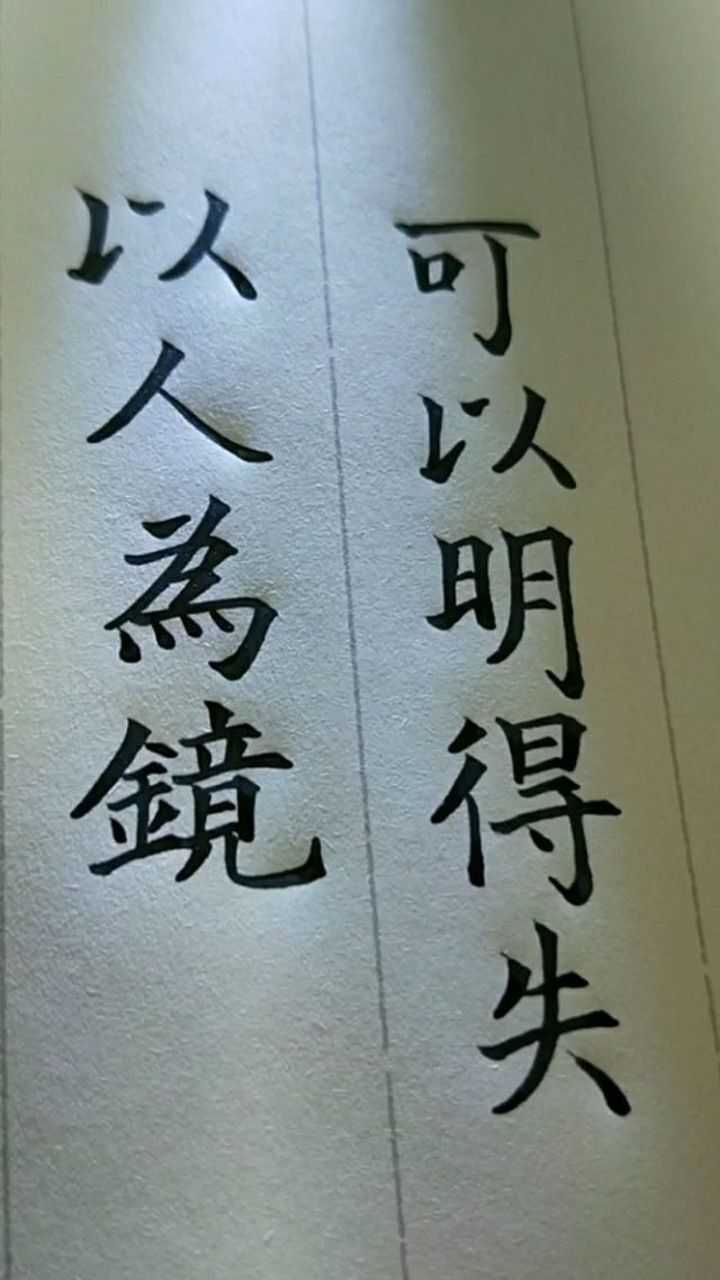 可以明得失
以人為鏡